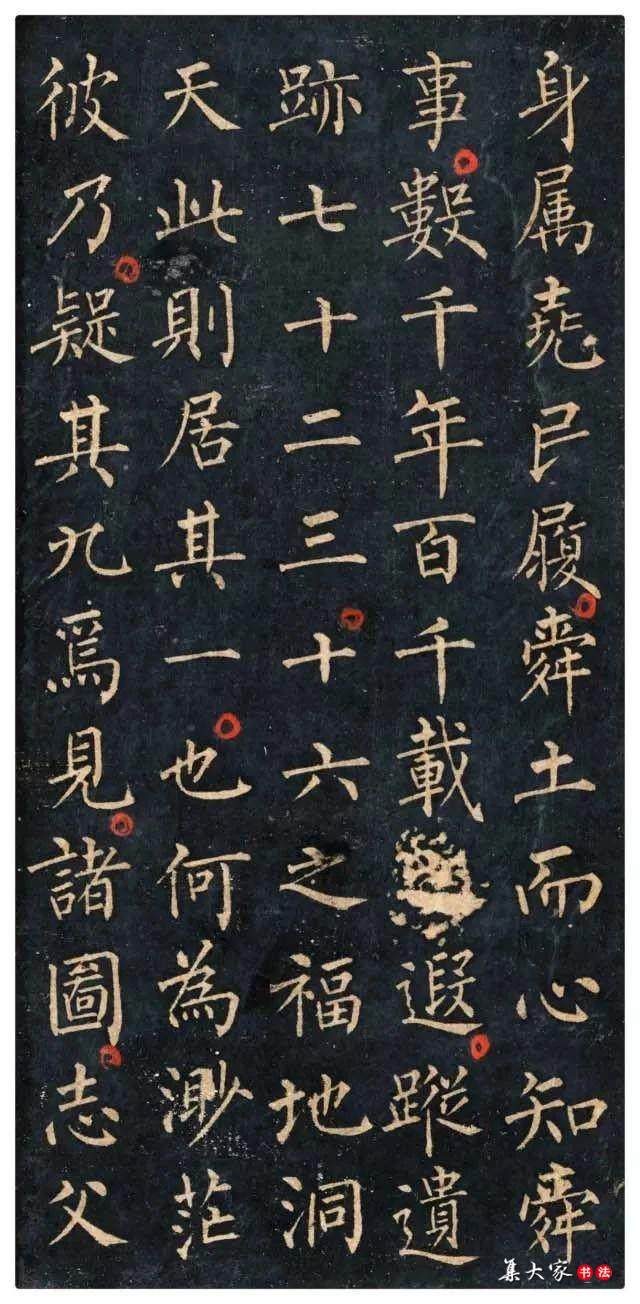 身属堯民履舜土而心知舜
事數千年百千載遐蹤遺
跡七十二三十六之福地洞
天此則居其一也何為渺茫
彼乃疑其九爲見諸圖志父
集大家书法